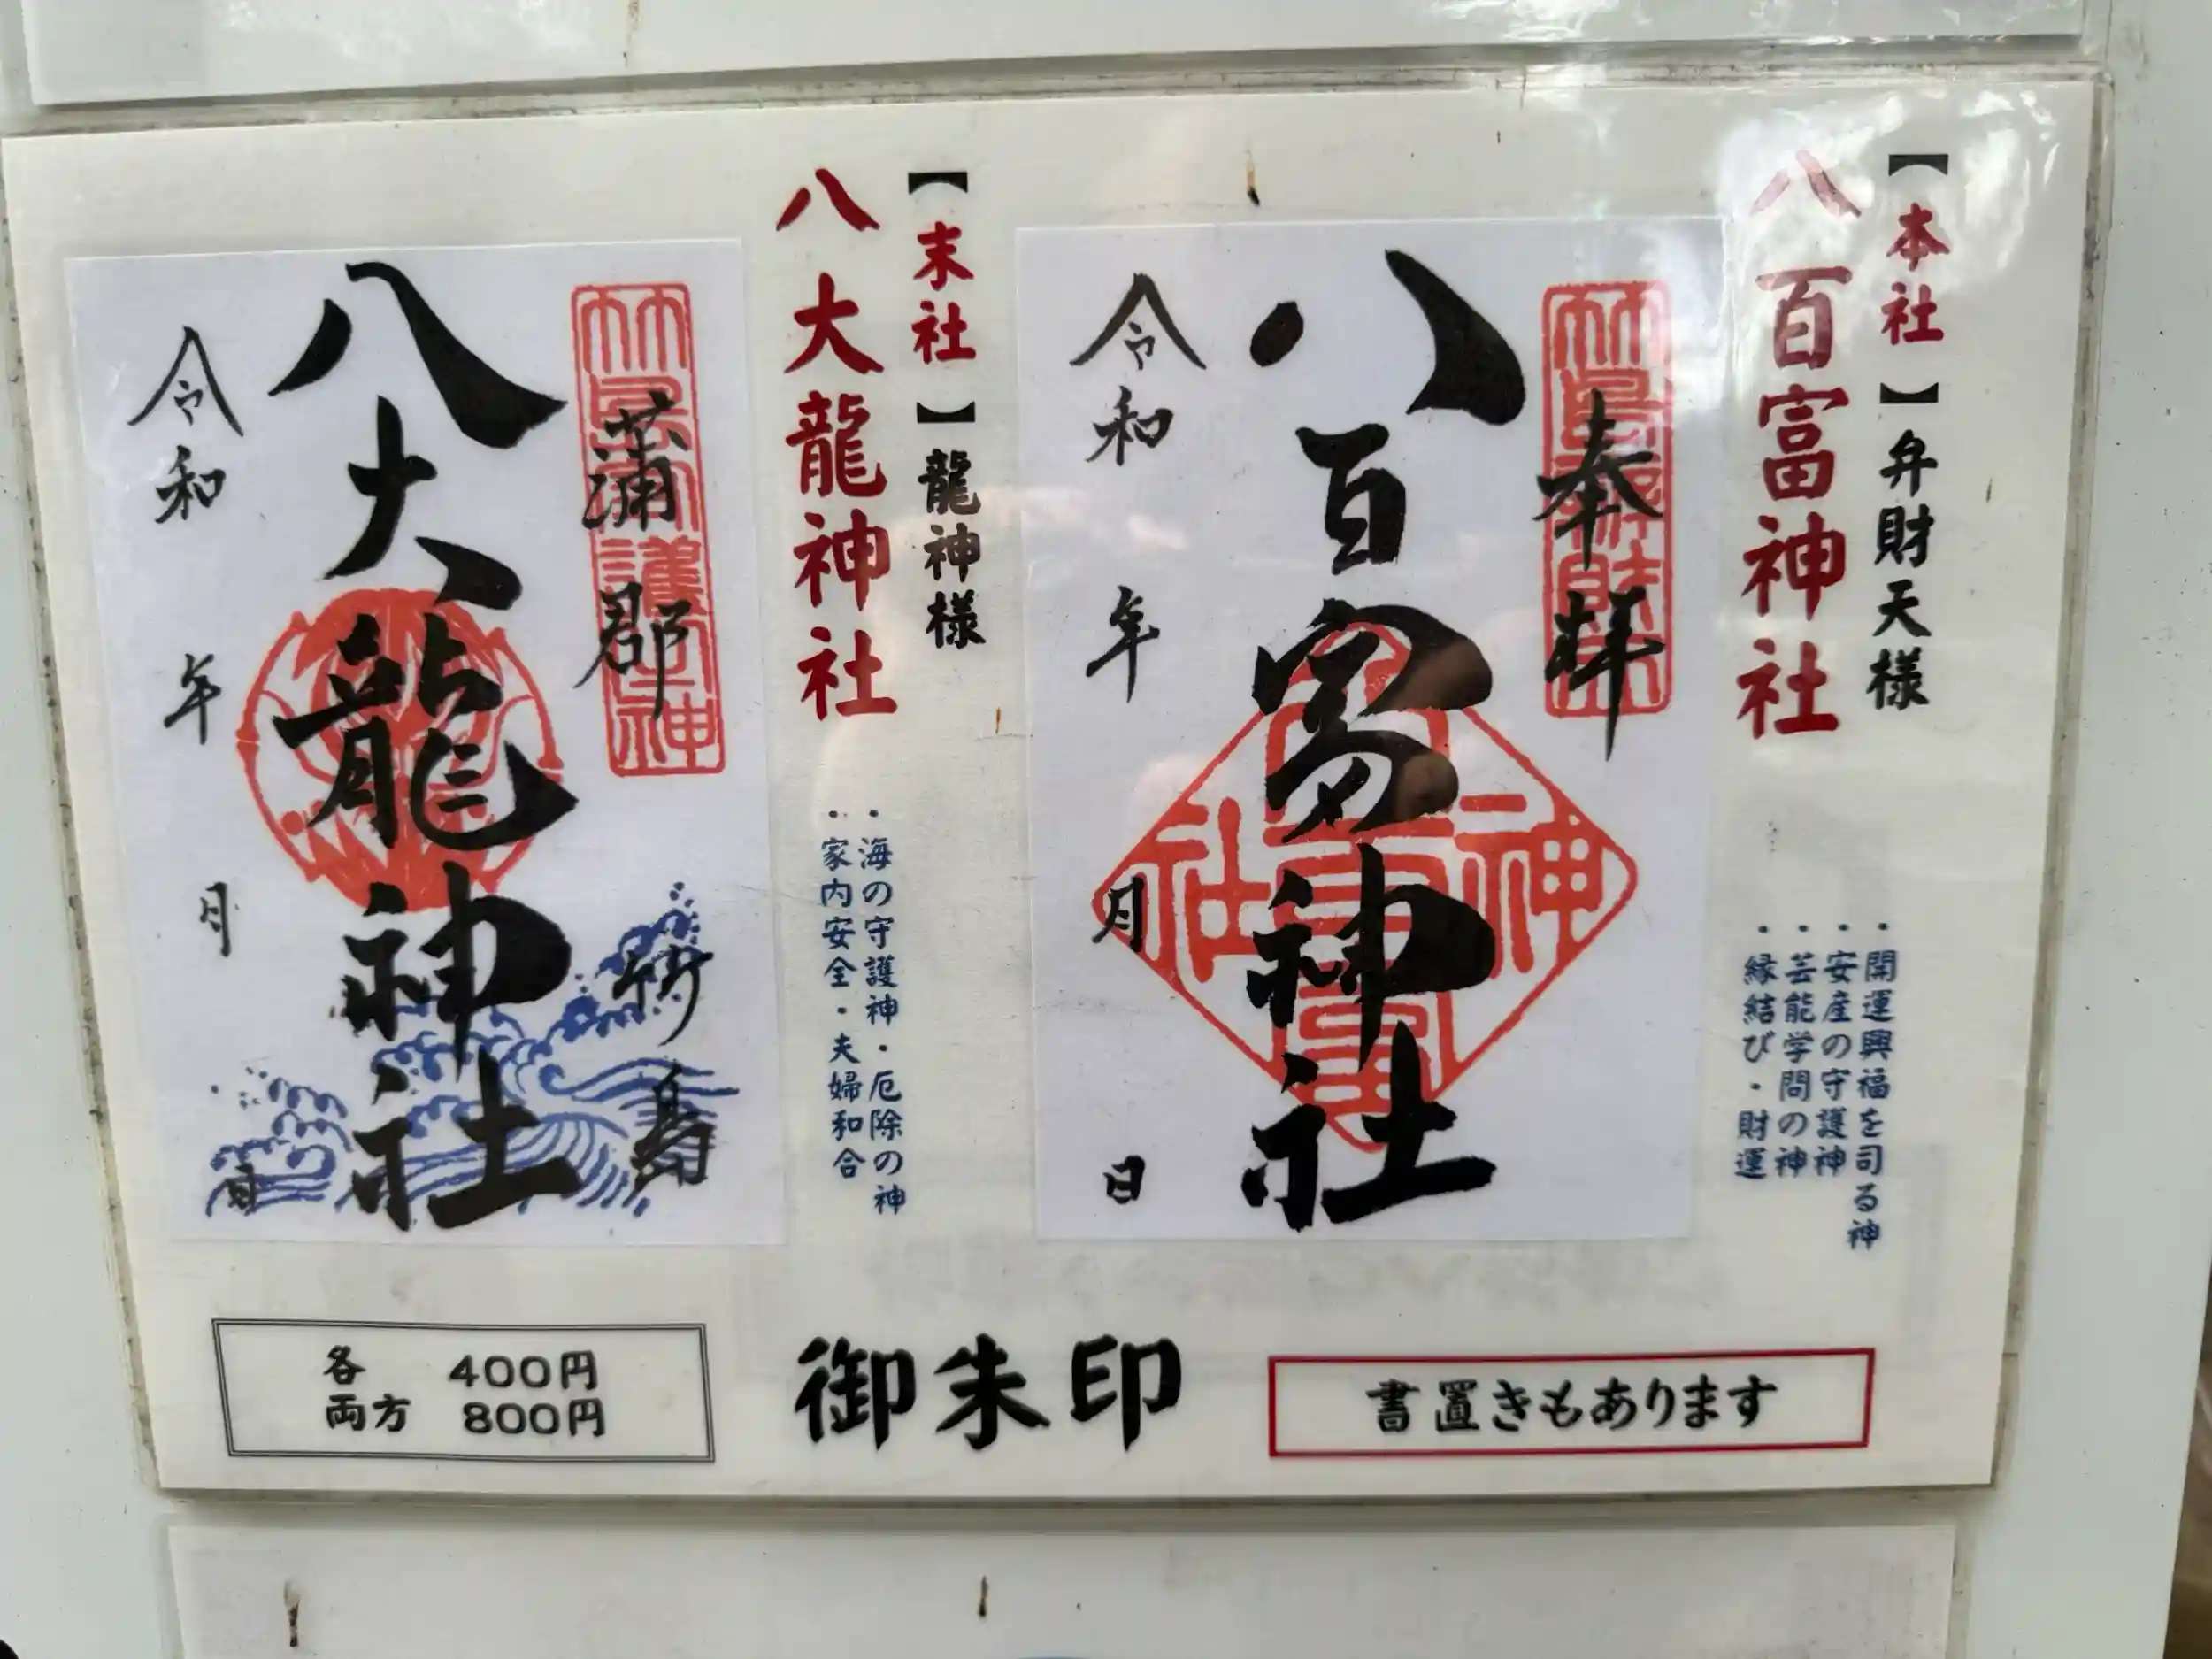 【本社】弁財天様
八百富神社
・開運興福を司る神
・安産の守護神
・芸能学問の神
・縁結び・財運
奉拝
八百富神社
令和 年 月 日
【末社】龍神様
八大龍神社
・海の守護神・厄除の神
・家内安全・夫婦和合
蒲郡 竹島
八大龍神社
令和 年 月 日
各 400円
両方 800円
御朱印
書置きもあります